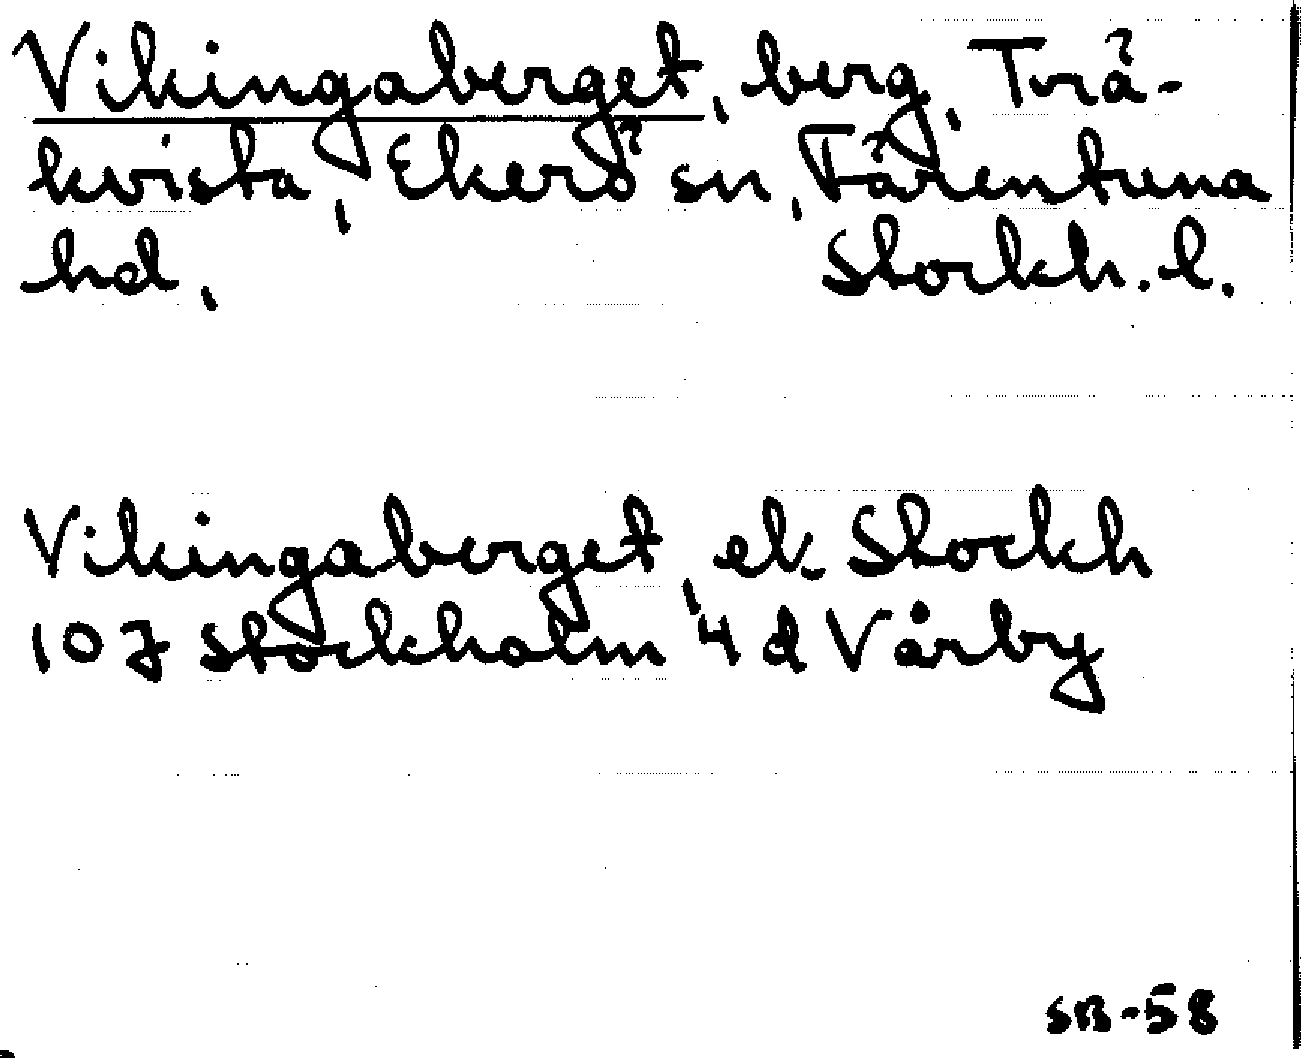 Vikingaberget, berg, Trä-
kvista, Ekerö sn, Färentuna
hd, Stockh. l.
Vikingaberget, ek. Stockh
10 J Stockholm, 4 d Vårby
SB-58